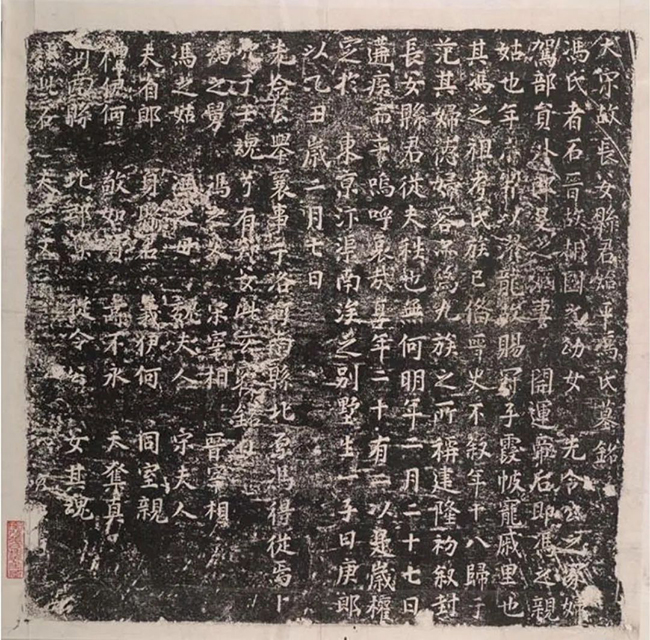 大宋故長安縣君始平馮氏墓銘
馮氏者石晉故相國之幼女 先令公之冢婦
駕部員外郎旻之嫡妻 開運 后即馮之親
姑也年甫笄以潛龍故賜冠子霞帔寵戚里也
其馮之祖考氏族已俻晉史不敘年十八歸于
范其婦德婦容 為九族之所稱建隆初敘封
長安縣君從夫秩也無何明年二月二十七日
遘疾而卒嗚呼哀哉其年二十有二以是歲權
窆於 東京汴渠南涘之别墅生一子曰庚郎
以乙丑歲二月七日
先令公舉襄事于洛河南縣北原馮得從焉卜
穴于壬魂兮有知安此安 銘曰
馮之舅 馮之父 宋宰相 晉宰相
馮之姑 馮之母 夫人 宗夫人
夫省郎 身縣君 義伊何 同室親
禮伊何 敬如賓 壽不永 天奪真
河南縣 北部 從令公 安其魂